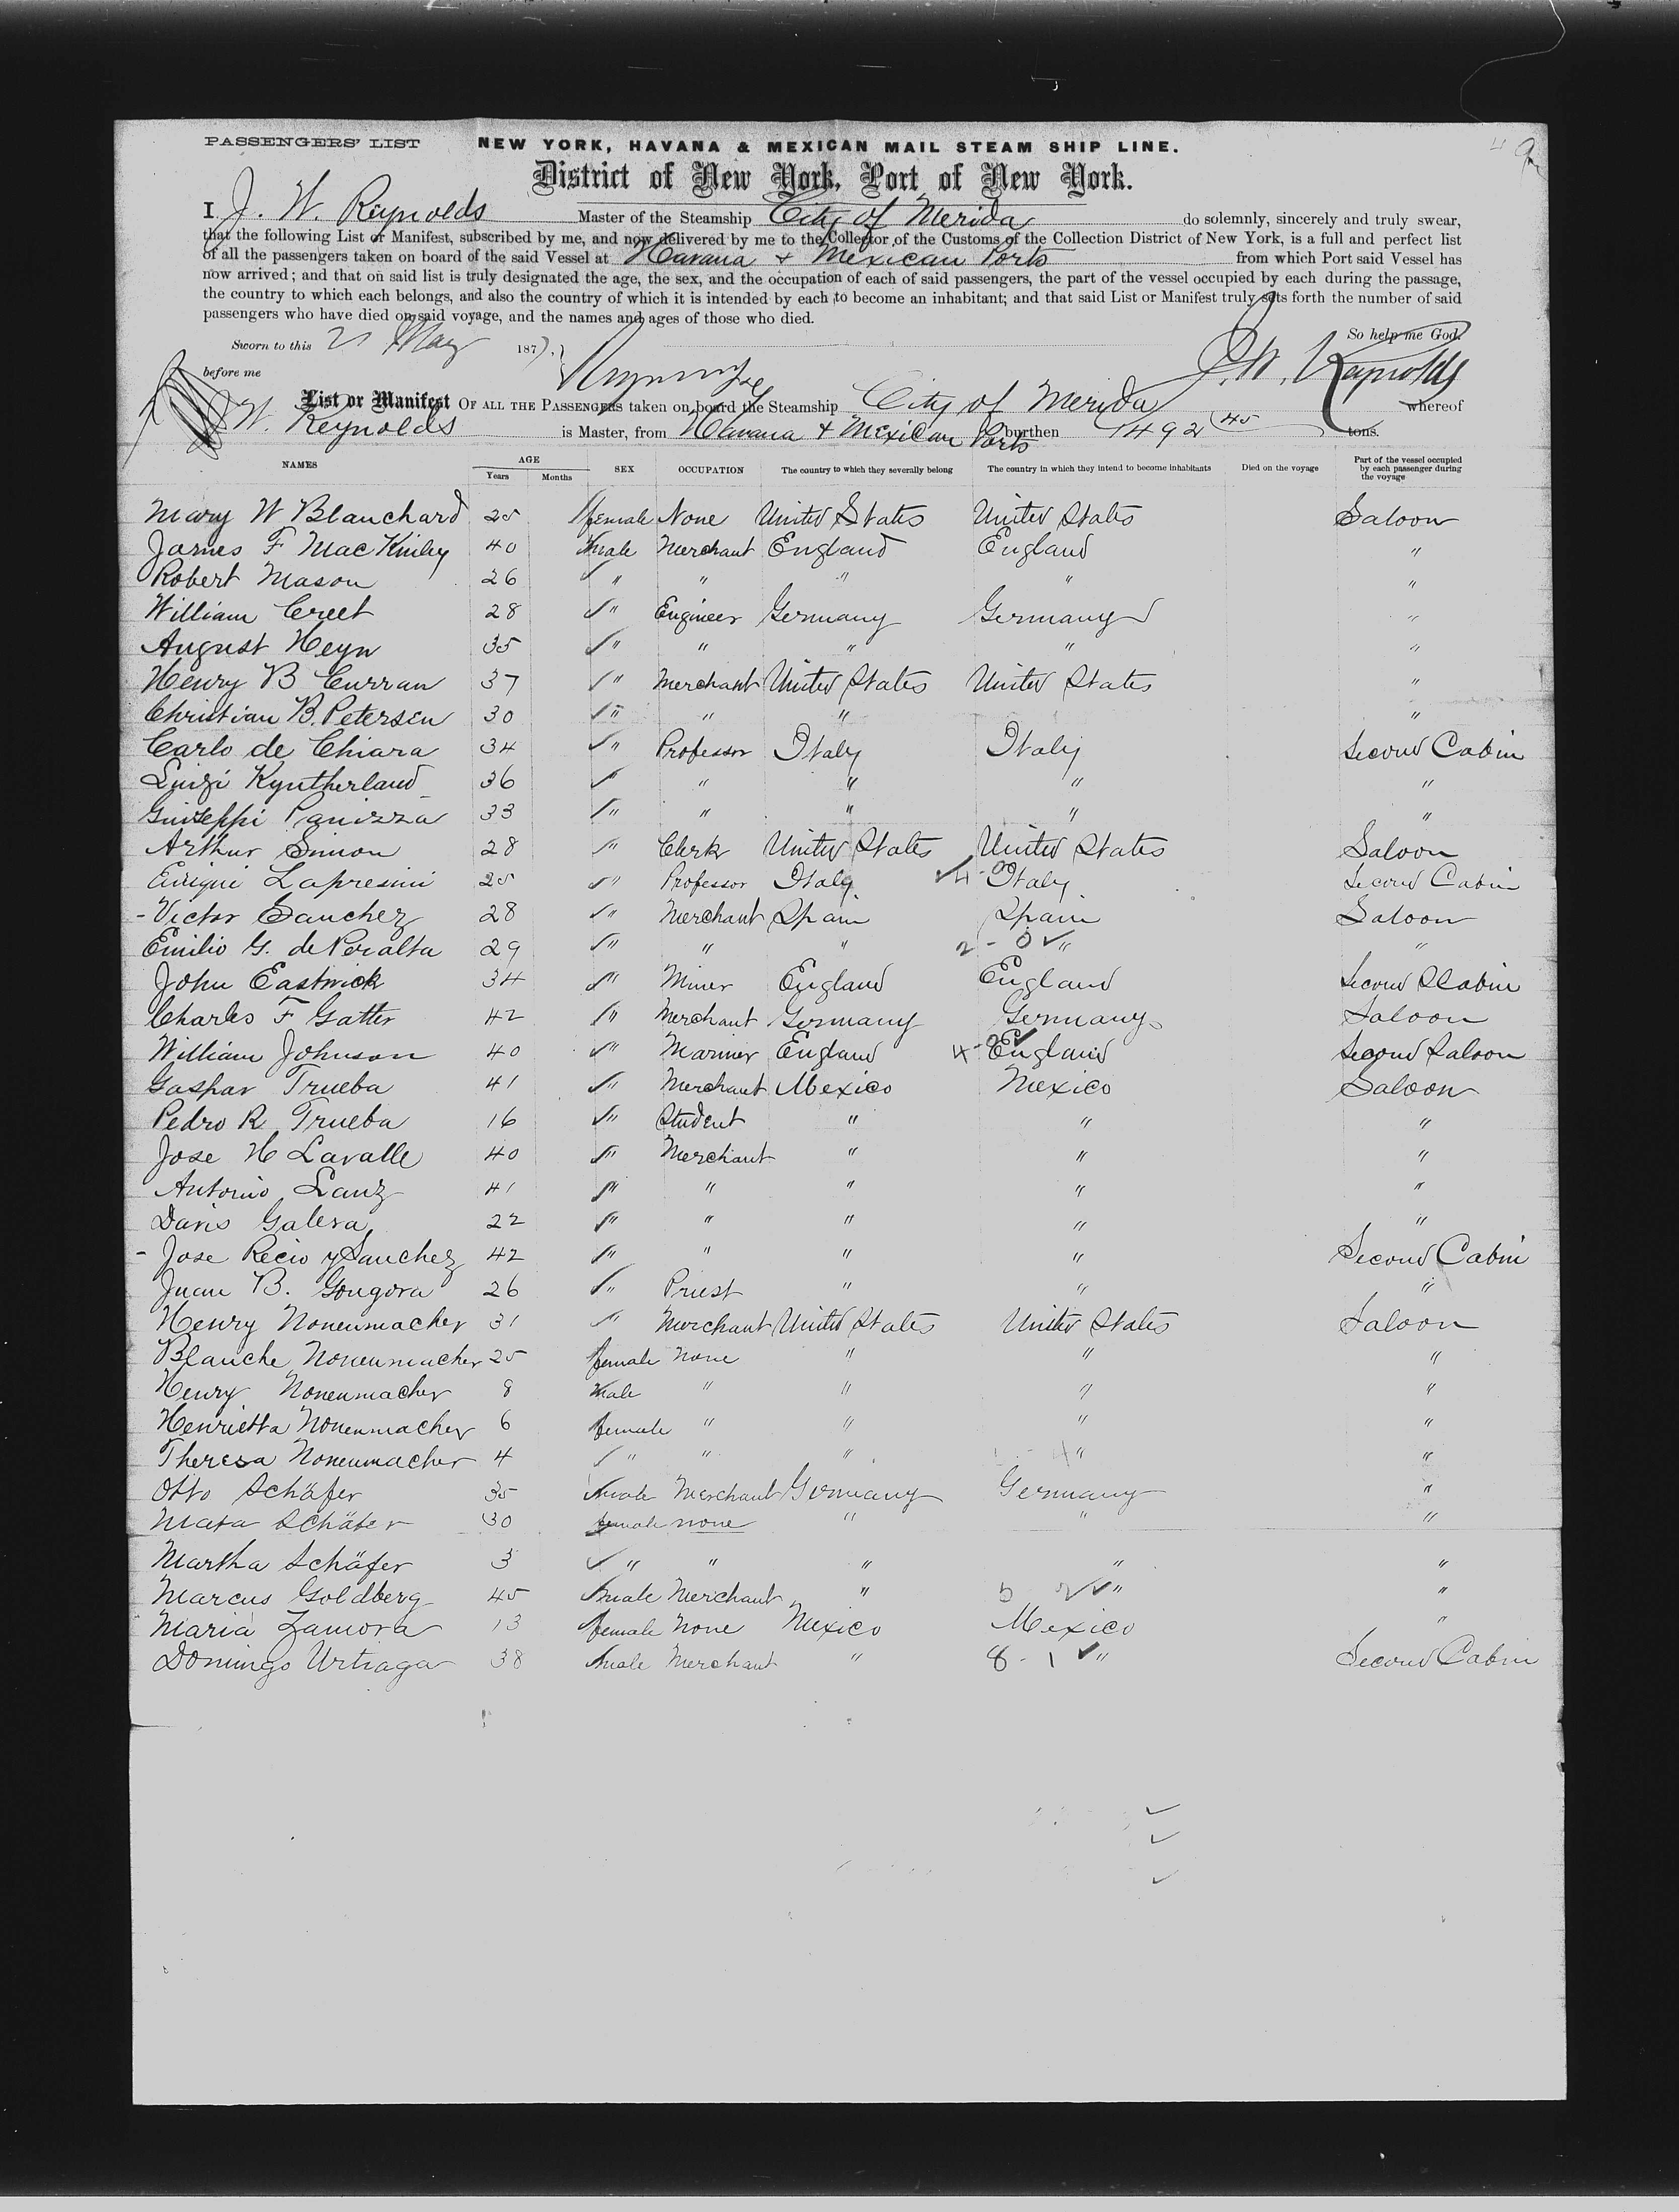 PASSENGERS' LIST NEW YORK, HAVANA & MEXICAN MAIL STEAM SHIP LINE.
District of New York, Port of New York.
I J. W. Reynolds Master of the Steamship City of Merida do solemnly, sincerely and truly swear,
that the following List or Manifest, subscribed by me, and now delivered by me to the Collector of the Customs of the Collection District of New York, is a full and perfect list
of all the passengers taken on board of the said Vessel at Havana & Mexican Ports from which Port said Vessel has
now arrived; and that on said list is truly designated the age, the sex, and the occupation of each of said passengers, the part of the vessel occupied by each during the passage,
the country to which each belongs, and also the country of which it is intended by each to become an inhabitant; and that said List or Manifest truly sets forth the number of said
passengers who have died on said voyage, and the names and ages of those who died.
So help me God.
Sworn to this 21 May 1877.
J. W. Reynolds
before me
List or Manifest OF ALL THE PASSENGERS taken on board the Steamship City of Merida whereof
W. Reynolds is Master, from Havana & Mexican Ports burthen 1492 45 tons.
NAMES AGE Years Months SEX OCCUPATION The country to which they severally belong The country in which they intend to become inhabitants Died on the voyage Part of the vessel occupied by each passenger during the voyage
Mary W Blanchard 25 female None United States United States Saloon
James F MacKinley 40 male Merchant England England "
Robert Mason 26 " " " " "
William Creet 28 " Engineer Germany Germany "
August Heyn 35 " " " " "
Henry B Curran 37 " Merchant United States United States "
Christian B. Petersen 30 " " " "
Carlo de Chiara 34 " Professor Italy Italy Second Cabin
Luizi Kyntherland 36 " " " "
Guiseppi Panizza 33 " " " " "
Arthur Simon 28 " Clerk United States United States Saloon
Enrique Lapresini 25 " Professor Italy Italy Second Cabin
- Victor Sanchez 28 " Merchant Spain Spain Saloon
Emilio G. de Peralta 29 " " " 2 - 0 " "
John Eastwick 34 " Miner England England Second Cabin
Charles F Gatter 42 " Merchant Germany Germany Saloon
William Johnson 40 " Mariner England England Second Saloon
Gaspar Trueba 41 " Merchant Mexico Mexico Saloon
Pedro R Trueba 16 " Student " " "
Jose H Lavalle 40 " Merchant " " "
Antonio Lanz 41 " " " " "
Davis Galera 22 " " " " "
- Jose Recio y Sanchez 42 " " " " Second Cabin
Juan B. Gongora 26 " Priest " " "
Henry Nonenmacher 31 " Merchant United States United States Saloon
Blanche Nonenmacher 25 female None " " "
Henry Nonenmacher 8 male " " " "
Henrietta Nonenmacher 6 female " " " "
Theresa Nonenmacher 4 " " " " "
Otto Schäfer 35 male Merchant Germany Germany "
Mata Schäfer 30 female none " " "
Martha Schäfer 3 " " " " "
Marcus Goldberg 45 male Merchant " 5 2 " "
Maria Zamora 13 female None Mexico Mexico "
Domingo Urtiaga 38 male Merchant " 8 - 1 " Second Cabin